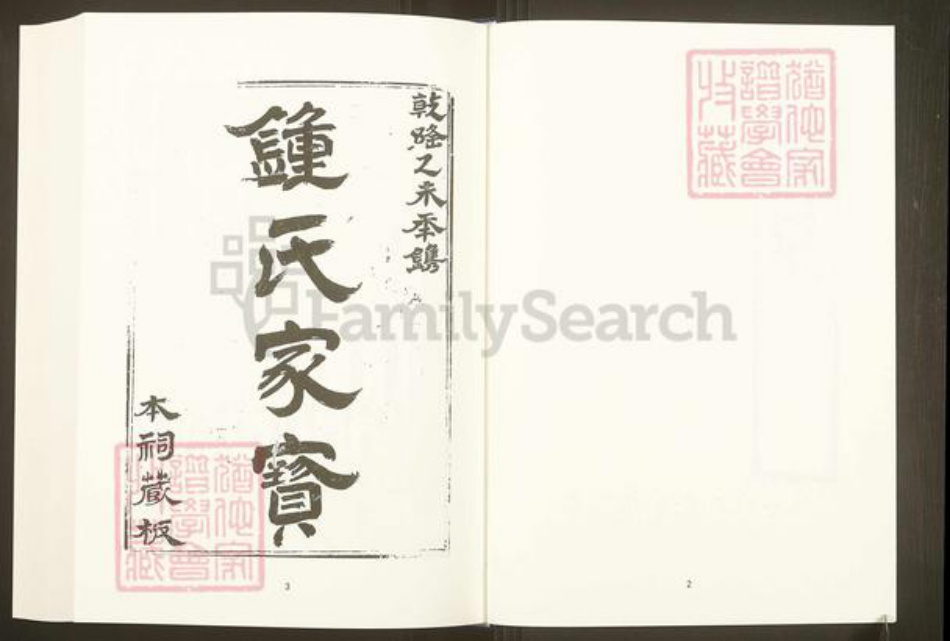 猶他家
譜學會
收藏
2
乾隆乙未年鐫
鍾氏家寶
本祠藏板
猶他家
譜學會
收藏
3
FamilySearch